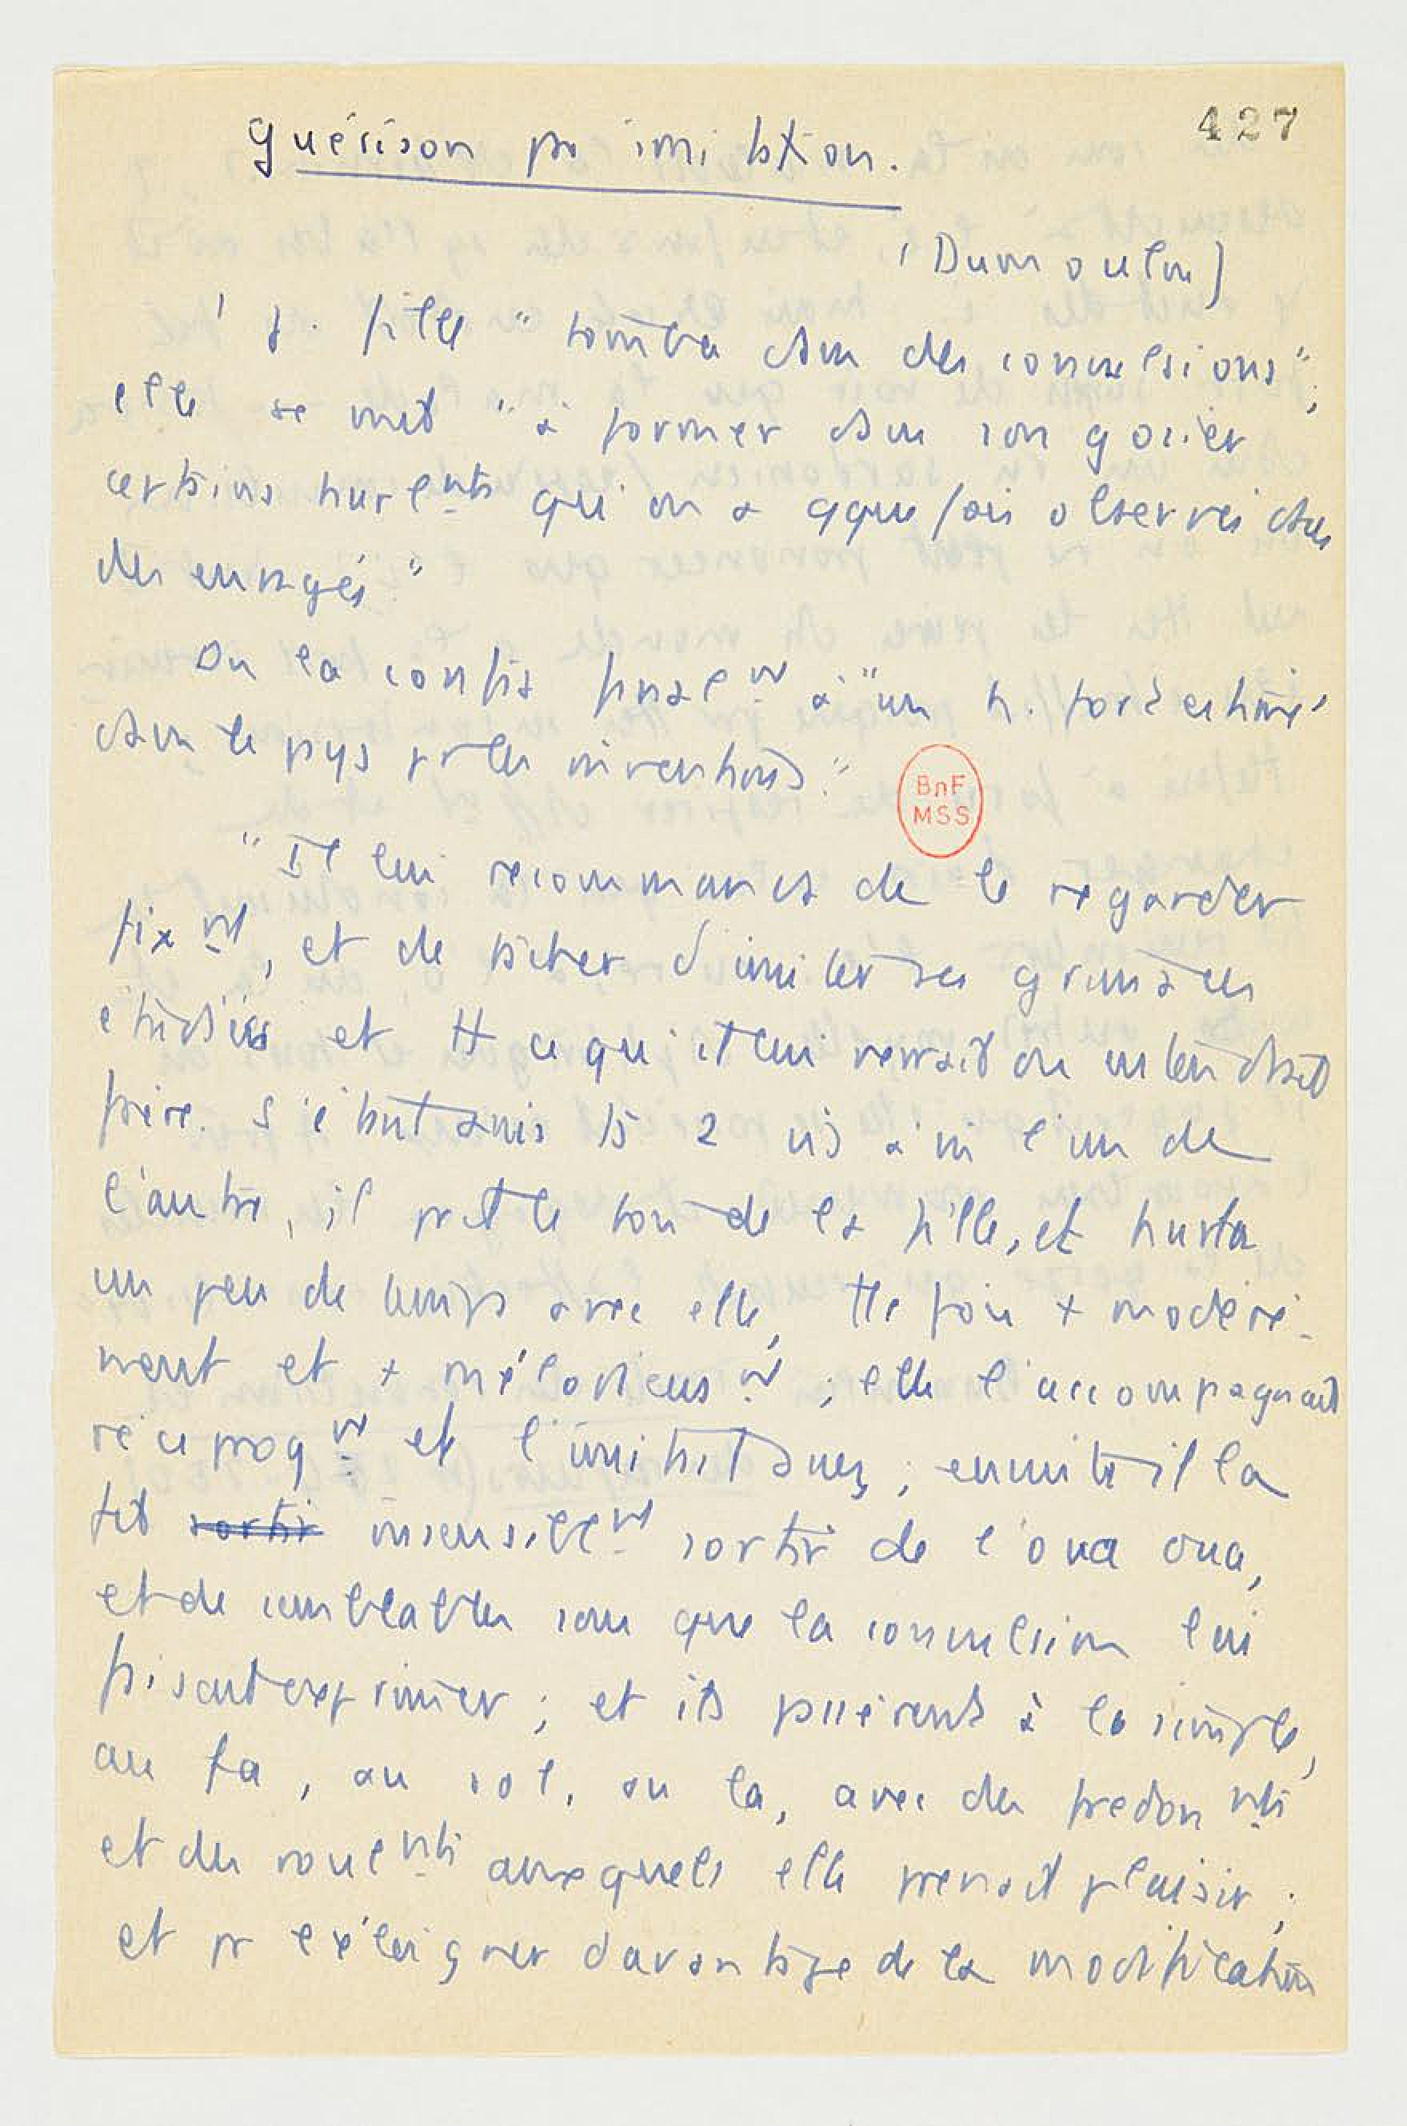 427
Guérison par imitation.
(Dumoulin)
1 j. fille "tomba dans des convulsions";
elle se met "à former dans son gosier
certains hurlnts qu'on a qque fois observés chez
des enragés"
On la confia finalnt à "un h. fort estimé
dans le pays pr les inventions."
BnF
MSS
"Il lui recommanda de le regarder
fixnt, et de tâcher d'imiter ses grimaces
étudiées et tt ce qu'il lui verrait ou entendrait
faire. S'étant assis ts 2 vis à vis l'un de
l'autre, il prit le ton de la fille, et hurla
un peu de temps avec elle, ttefois + modéré-
ment et + mélodieusnt ; elle l'accompagnait
réciproqnt et l'imitait assez ; ensuite il la
fit sortir insensiblnt sortir de l'oua oua,
et de semblables sons que la convulsion lui
faisait exprimer ; et ils passèrent à la simple,
au fa, au sol, au la, avec des fredonnts
et des roulnts auxquels elle prenait plaisir ;
et pr l'éloigner davantage de la modification